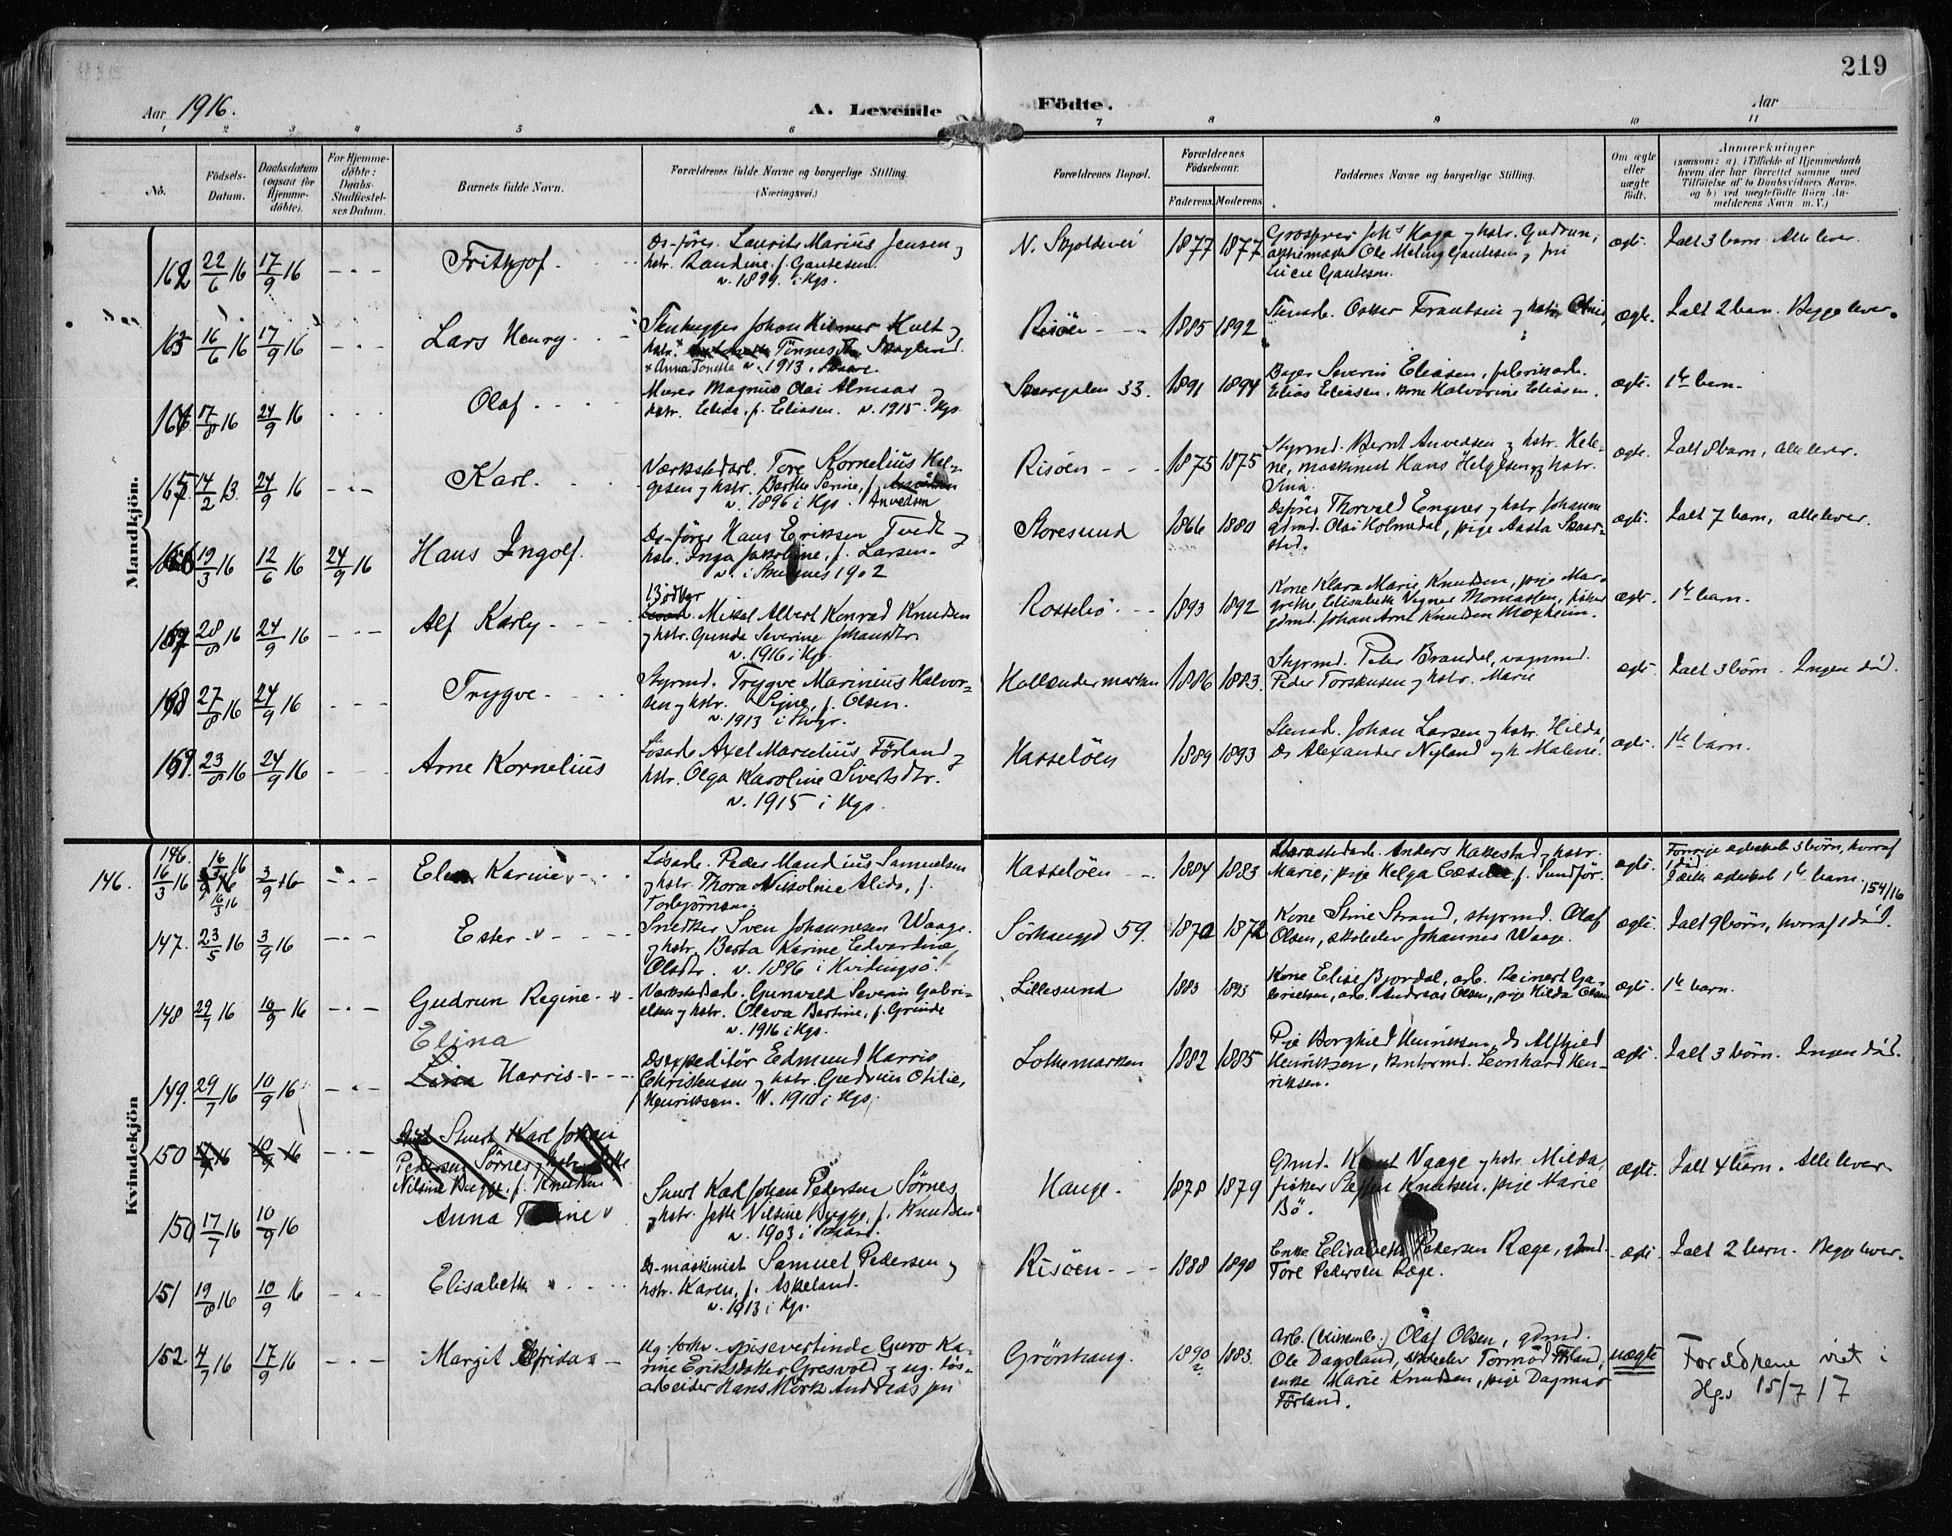 219
Aar 1916.
A. Levende
Födte.
Aar
1 2 3 4 5 6 7 8 9 10 11
No.
Födsels-
Datum.
Daabsdatum
(ogsaa for
Hjemme-
döbte).
For Hjemme-
döbte:
Daabs-
Stadfæstel-
ses Datum.
Barnets fulde Navn.
Forældrenes fulde Navne og borgerlige Stilling.
(Næringsvei.)
Forældrenes Bopæl.
Forældrenes
Födselsaar.
Faderens.
Moderens.
Faddernes Navne og borgerlige Stilling.
Om ægte
eller
uægte
födt.
Anmærkninger
(saasom: a) i Tilfælde af Hjemmedaab
hvem der har forrettet samme med
Tilföielse af to Daabsvidners Navne,
og b) ved uægtefödte Börn An-
melderens Navn m. V.)
Mandkjön.
162 22/6 16 17/9 16 Fritkjof
Ds-förer Laurits Marius Jensen og
hstr. Randine, f. Gautesen.
v. 1899 i Hgs.
N. Skjoldevei 1877 1877
Joh's Haga og hstr. Gudrun,
Ole Meling Gautesen, frk
Gautesen.
ægte. Ialt 3 barn. Alle lever.
163 16/6 16 17/9 16 Lars Henry
Stenhugger Johan Hilmer Hult og
hstr. Skogland.
x Anna Tonette v. 1913 i Skaare.
Risöen 1885 1892
Stenarb. Oskar Frantsen og hstr.
ægte. Ialt 2 barn. Begge lever.
164 17/8 16 24/9 16 Olaf
Murer Magnus Olai Almaas og
hstr. Elida, f. Eliasen. v. 1915 i Hgs.
Skaregaten 33. 1891 1894
Bager Severin Eliasen, fabrikarb.
Elias Eliasen, kone Halvorine Eliasen.
ægte. 1ste barn.
165 14/2 13. 24/9 16 Karl.
Værkstedarb. Tore Kornelius Hel-
gesen og hstr. Berthe Serine, f.
v. 1896 i Hgs. Anvedsen
Risöen 1875 1875
Styrmd. Bernt Anvedsen og hstr. Hele-
ne, maskinist Hans Helgesen og hstr.
Sina.
ægte. Ialt 8 barn, alle lever.
166 19/3 16 12/6 16 24/9 16 Hans Ingolf
Ds-förer Hans Eriksen Tvedt og
hstr. Inga Jakobine, f. Larsen.
v. i Skudesnes 1902
Storesund 1866 1880
Dsförer Thorvald Engnes og hstr. Johanne
gdmd. Olai Holmedal, pige Aasta Skaar-
stad.
ægte. Ialt 7 barn, alle lever.
167 28/8 16 24/9 16 Alf Karly
Bödker
Mikal Albert Konrad Knudsen
og hstr. Gunda Severine Johansdtr.
v. 1916 i Hgs.
Rossebö 1893 1892
Kone Klara Marie Knudsen, pige Mar-
grethe Elisabeth Vegner Thomassen, fisker
gdmd. Johan Arnt Knudsen
ægte. 1ste barn.
168 27/8 16 24/9 16 Trygve
Styrmd. Trygve Marinius Halvor-
sen og hstr. Signe, f. Olsen.
v. 1913 i Stvgr.
Hollendermarken 1886 1883.
Styrmd. Peter Brandal, vognmd.
Peder Torskusen og hstr. Marie
ægte. Ialt 3 börn. Ingen död.
169. 23/8 16 24/9 16 Arne Kornelius
Lösarb. Axel Marselius Förland og
hstr. Olga Karoline Sivertsdtr.
v. 1915 i Hgs.
Hasselöen 1889 1893
Stenarb. Johan Larsen og hstr. Hilda,
Ds Alexander Nyland og h. Malene.
ægte. 1ste barn.
Kvindekjön
146. 16/3 16 3/9 16 Karine
Lösarb. Peder Mandius Samuelsen
og hstr. Thora Nikoline Alida, f.
Torbjörnsen.
Hasselöen 1884 1883
Værkstedarb. Anders Kallestad og hstr.
Marie, pige Helga f. Sundför.
ægte. Forrige ægteskab 3 börn, hvoraf
1 död.
I dette ægteskab 1ste barn. 154/16
147. 23/5 16 3/9 16 Ester
Snedker Sven Johannesen Waage.
og hstr. Berta Karine Edvardine
Olsdtr. v. 1896 i Kvitingsö.
Sörhauggd 59. 1872 1872
Kone Stine Strand, styrmd. Olaf
Olsen, skoleelev Johannes Waage.
ægte. Ialt 9 börn, hvoraf 1 död.
148 29/7 16 10/9 16 Gudrun Regine
Værkstedarb. Gunvald Severin Gabri-
elsen og hstr. Oleva Bertine, f. Grinde
v. 1916 i Hgs.
Lillesund 1883 1893
Kone Elise Bjordal, arb. Reinert Ga-
brielsen, arb. Andreas Olsen, pige Hilda Olsen
ægte. 1ste barn.
Elina
149. 29/7 16 10/9 16 Harris
Dsexpeditör Edmund Harris
Christensen og hstr. Gudrun Otilie,
f. Henriksen. v. 1910 i Hgs.
Lothemarken 1882 1885
Pige Borghild Henriksen, ds Alfhild
Henriksen, kontormd. Leonhard Hen-
riksen.
ægte. Ialt 3 börn. Ingen död.
150 17/7 16 10/9 16 Stuert Karl Johan
Pedersen Sörnes og hstr. Jette
Nilsine Bugge, f. Knudsen
150 17/7 16 10/9 16 Anna
Stuert Karl Johan Pedersen Sörnes
og hstr. Jette Nilsine Bugge, f. Knudsen
v. 1903 i Skaare.
Hauge. 1878 1879
Gdmd. Knut Vaage og hstr. Milda,
fisker Steffen Knutsen, pige Marie
Bö.
ægte. Ialt 4 barn. Alle lever
151 19/8 16 10/9 16 Elisabeth
Ds-maskinist Samuel Pedersen og
hstr. Karen, f. Askeland.
v. 1913 i Hgs.
Risöen 1888 1890
Enke Elisabeth Pedersen Ræge, gdmd.
Tore Pedersen Ræge.
ægte Ialt 2 barn. Begge lever.
152 4/7 16 17/9 16 Margit Elfrida
Ug. forhv. spisevertinde Guro Ka-
rine Eriksdatter Gresvold og ug. lös-
arbeider Hans Mörk Andreassen
Grönhaug. 1890 1883.
Arb. Olaf Olsen, gdmd.
Ole Dagsland, skoleelev Tormod Förland,
enke Marie Knudsen, pige Dagmar
Förland.
uægte
Forældrene viet i
Hgs 15/7 17